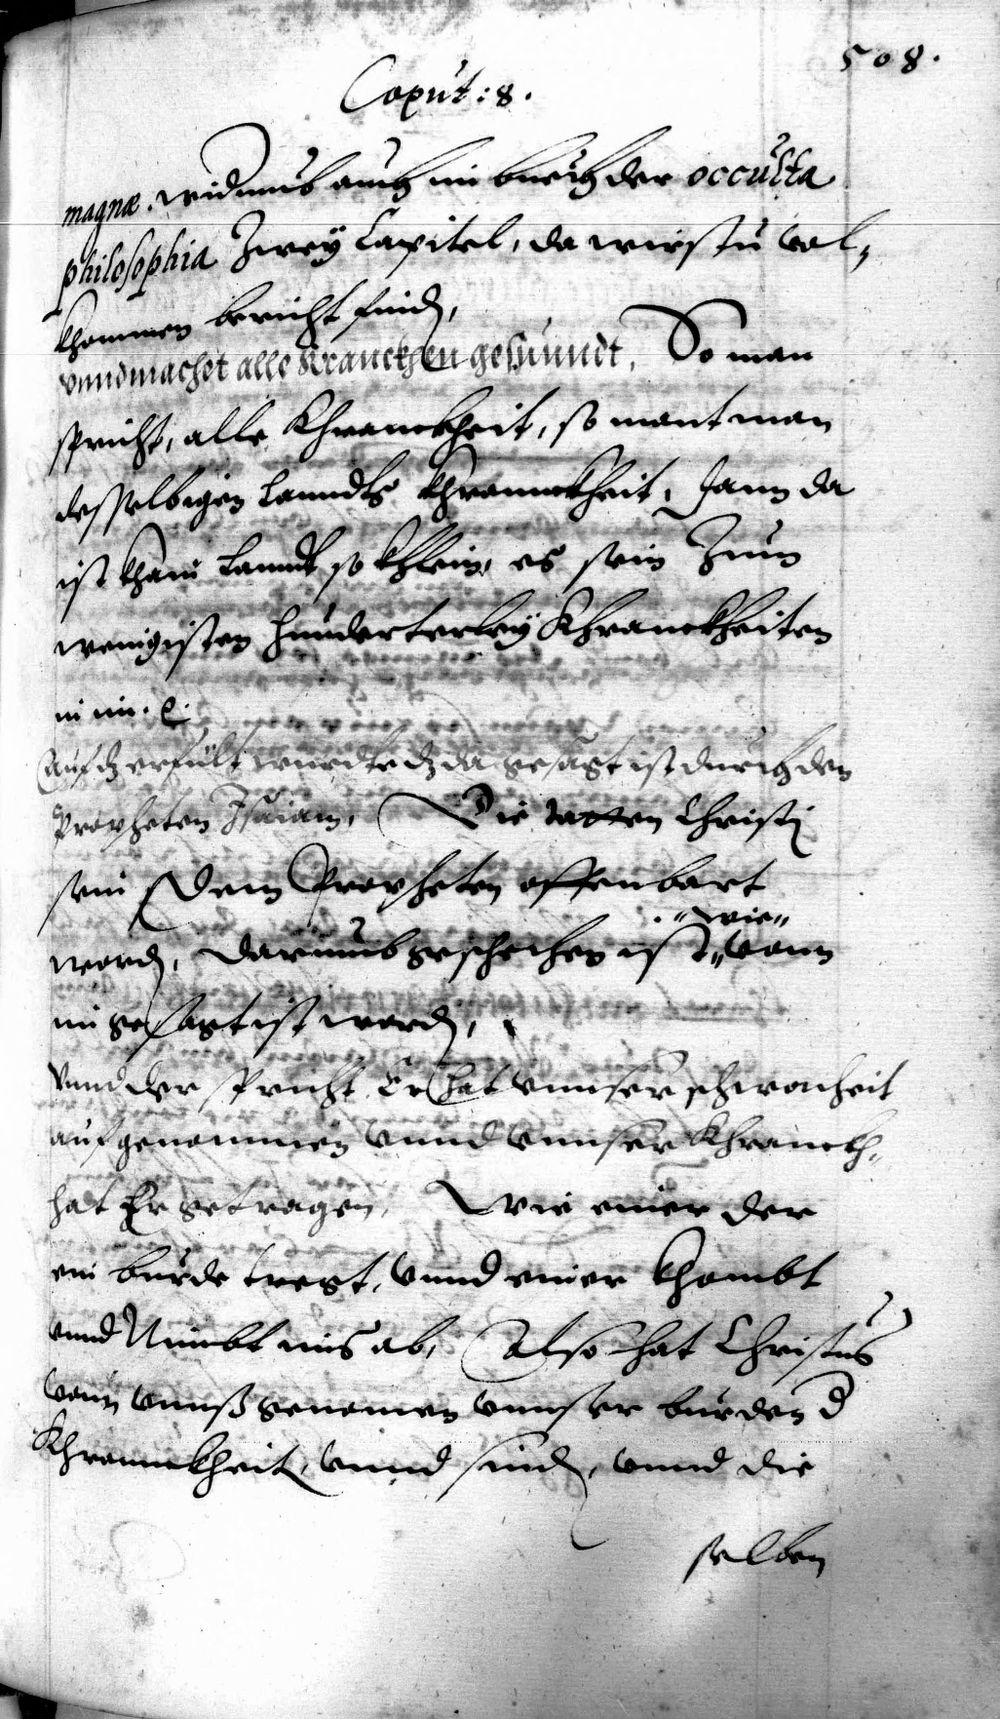 508.
Caput: 8.
magnæ. widmub auch im buech der occulta
philosophia Zwey Capitel, da wirstu vol,,
khommen bericht find,
vnnd machet alle Kranckhen gesuundt, So man
spricht, alle Khranckheit, so maint man
desselbigen lanndts khrannckheit, dann da
ist khain lanndt so khlein, es sein Zum
wenigisten hunderterley Khranckheiten
in im. &.
Auf dz erfült wurdte dz da gesagt ist durch den
Propheten Isaiam, Die tatten Christi
sein dem Propheten offenbart
"wie"
word, darumb geschehen ist,, vonn
im gesagt ist word,
vnnd der spricht Er hat vnnser schwacheit
aufgenommen vnnd vnnser Khranckh,,
hat Er getragen, Wie einer der
ein burde tregt, vnnd einer khombt
vnnd Nimbt ims ab, Also hat Christus
vonn vnnß genomen vnnser burden d
Khrannckheit, vnnd sünd, vnnd die
selben